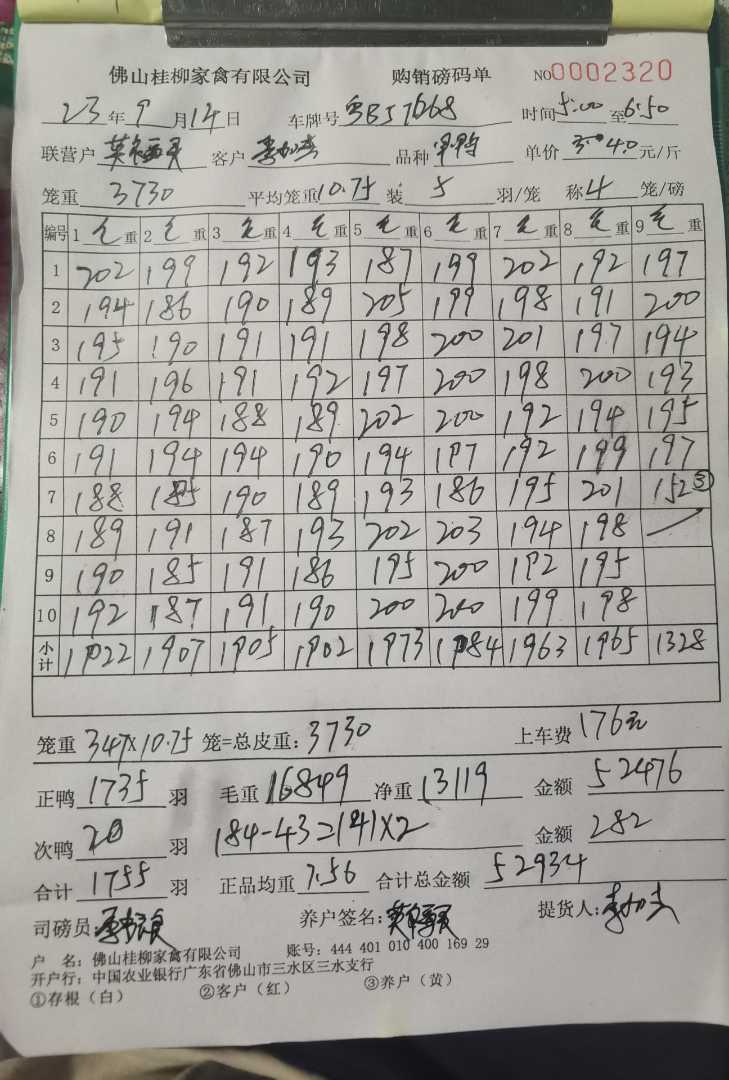 佛山桂柳家禽有限公司 购销磅码单 NO0002320
23年9月14日 车牌号粤BJ7668 时间5:00至6:50
联营户 客户 品种 单价3.040元/斤
笼重3730 平均笼重10.75装5羽/笼 称4笼/磅
编号 1毛重 2毛重 3毛重 4毛重 5毛重 6毛重 7毛重 8毛重 9毛重
1 202 199 192 193 187 199 202 192 197
2 194 186 190 189 205 199 198 191 200
3 195 190 191 191 198 200 201 197 194
4 191 196 191 192 197 200 198 200 193
5 190 194 188 189 202 200 192 194 195
6 191 194 194 190 194 197 192 199 197
7 188 185 190 189 193 186 195 201 152③
8 189 191 187 193 202 203 194 198
9 190 185 191 186 195 200 192 195
10 192 187 191 190 200 200 199 198
小计 1922 1907 1905 1902 1973 1984 1963 1965 1328
笼重347×10.75笼=总皮重:3730 上车费176元
正鸭1735羽 毛重16849净重13119 金额52476
次鸭20羽 184-43=141×2 金额282
合计1755羽 正品均重7.56 合计总金额52934
司磅员: 养户签名: 提货人:
户 名:佛山桂柳家禽有限公司 账号:444 401 010 400 169 29
开户行:中国农业银行广东省佛山市三水区三水支行
①存根(白) ②客户(红) ③养户(黄)